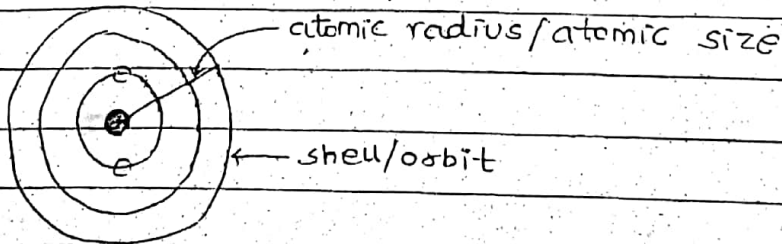 atomic radius/atomic size
e
e
shell/orbit